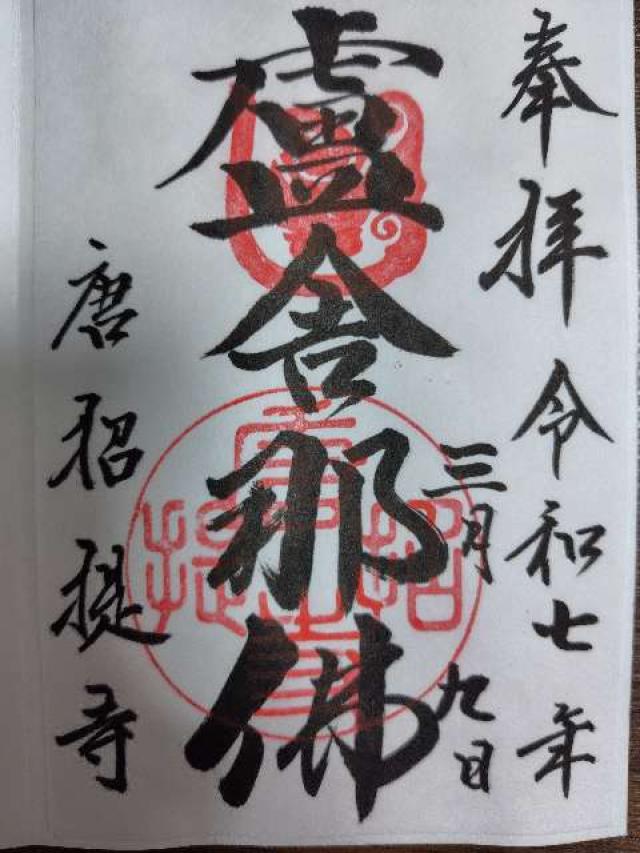 奉拝 令和七年
三月九日
盧舎那佛
唐招提寺